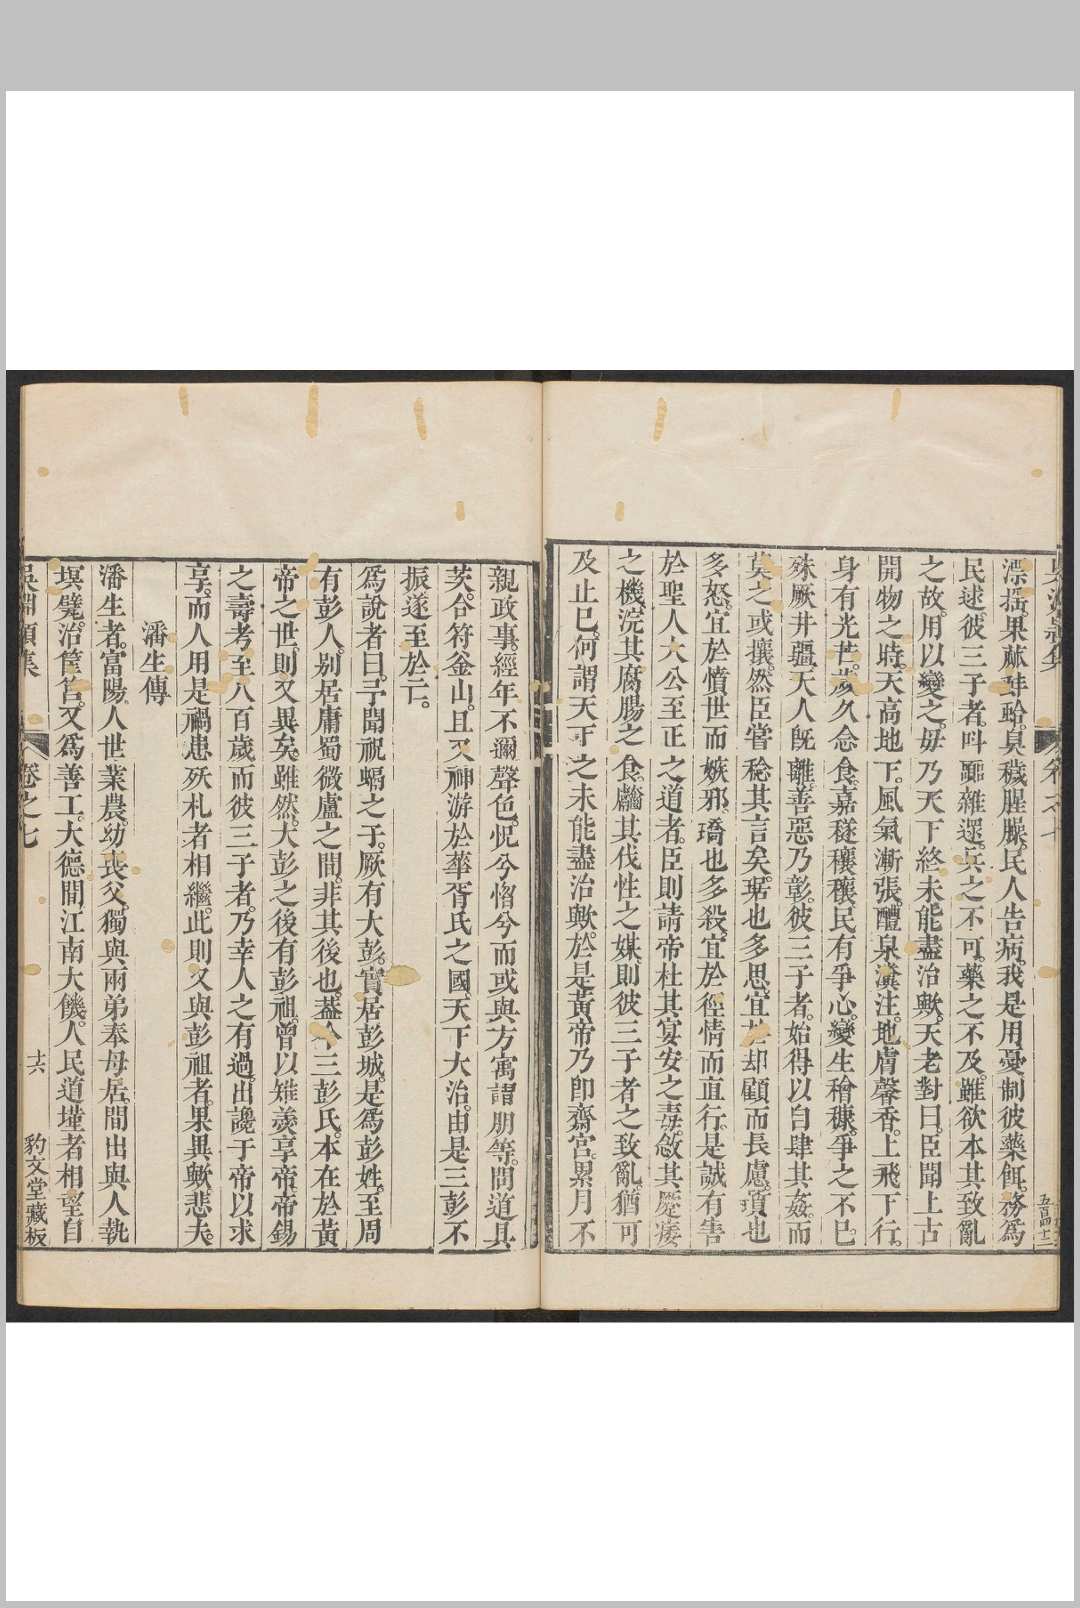 漂搖。果蓏蚌蛤。臭穢腥臊。民人告病。我是用憂制彼藥餌。務爲
民逑。彼三子者。呌嚻雜還。兵之不可。藥之不及。雖欲本其致亂
之故。用以變之。毋乃天下終未能盡治歟。天老對曰。臣聞上古
開物之時。天高地下。風氣漸張。醴泉滃注。地膚馨香。上飛下行。
身有光芒。歲久念食。嘉穟穰穰。民有爭心。變生穭穅。爭之不已。
殊厥井疆。天人旣離。善惡乃彰。彼三子者。始得以自肆其姦。而
莫之或攘。然臣嘗稔其言矣。琚也多思。宜於却顧而長慮。瓆也
多怒。宜於憤世而嫉邪。瑀也多殺。宜於徑情而直行。是誠有害
於聖人大公至正之道者。臣則請帝杜其宴安之毒。斂其蹙痿
之機。浣其腐腸之食。黼其伐性之媒。則彼三子者之致亂。猶可
及止巳。何謂天下之未能盡治歟。於是黃帝乃卽齋宮。累月不
親政事。經年不邇聲色。怳兮惝兮而或與方寓謂朋等。問道具
茨。合符釜山。且又神游於華胥氏之國。天下大治。由是三彭不
振。遂至於亡。
爲說者曰。予聞祝螎之子。厥有大彭。實居彭城。是爲彭姓。至周
有彭人。别居庸蜀微盧之間。非其後也。葢今三彭氏。本在於黃
帝之世。則又異矣。雖然。大彭之後有彭祖。曾以雉羮享帝。帝錫
之壽考。至八百歲。而彼三子者。乃幸人之有過。出讒于帝以求
享。而人用是禍患殀札者相繼。此則又與彭祖者。果異歟。悲夫。
潘生傳
潘生者。富陽人。世業農。幼丧父。獨與兩弟奉母居。間出與人執
塓甓。治筐筥。又爲善工。大德間江南大饑。人民道墐者相望。自
吳淵穎集 卷之七 十六 豹文堂藏板